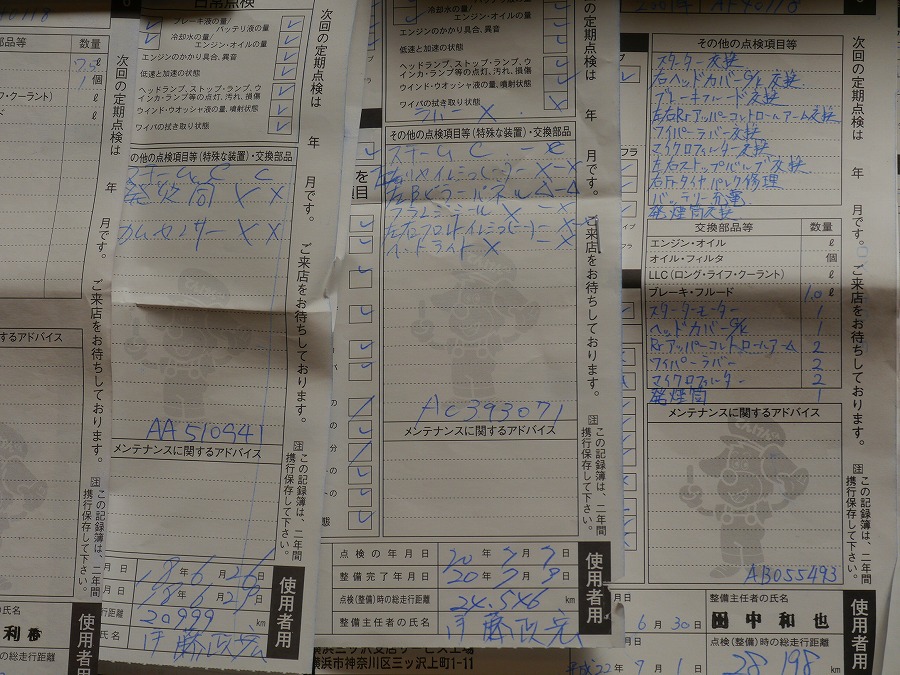 数量
7.5 ℓ
1 個
ℓ
次回の定期点検は　年　月です。ご来店をお待ちしております。
注 この記録簿は、二年間携行保存して下さい。
使用者用
日常点検
ブレーキ液の量/
バッテリ液の量
冷却水の量/
エンジン・オイルの量
エンジンのかかり具合、異音
低速と加速の状態
ヘッドランプ、ストップ・ランプ、ウインカ・ランプ等の点灯、汚れ、損傷
ウインド・ウオッシャ液の量、噴射状態
ワイパの拭き取り状態
の他の点検項目等(特殊な装置)・交換部品
発炎筒 × ×
カムセンサー × ×
AA510941
メンテナンスに関するアドバイス
18年6月26日
18年6月29日
20999 km
伊藤政宏
次回の定期点検は　年　月です。ご来店をお待ちしております。
注 この記録簿は、二年間携行保存して下さい。
使用者用
冷却水の量/
エンジン・オイルの量
エンジンのかかり具合、異音
低速と加速の状態
ヘッドランプ、ストップ・ランプ、ウインカ・ランプ等の点灯、汚れ、損傷
ウインド・ウオッシャ液の量、噴射状態
ワイパの拭き取り状態
ラバー ×
その他の点検項目等(特殊な装置)・交換部品
スチーム C - C
AC393071
メンテナンスに関するアドバイス
点検の年月日 20年7月7日
整備完了年月日 20年7月9日
点検(整備)時の総走行距離 24,546 km
整備主任者の氏名 伊藤政宏
次回の定期点検は　年　月です。ご来店をお待ちしております。
注 この記録簿は、二年間携行保存して下さい。
使用者用
横浜三ッ沢支店サービス工場
横浜市神奈川区三ッ沢上町1-11
その他の点検項目等
スターター交換
右ヘッドカバーG/K交換
ブレーキフルード交換
左右Rrアッパーコントロールアーム交換
ワイパーラバー交換
マイクロフィルター交換
左右ストップバルブ交換
右Frタイヤパンク修理
バッテリー充電
発煙筒交換
交換部品等 数量
エンジン・オイル ℓ
オイル・フィルタ 個
LLC(ロング・ライフ・クーラント) ℓ
ブレーキ・フルード 1.0 ℓ
スターターモーター 1
ヘッドカバーG/K 1
Rrアッパーコントロールアーム 2
ワイパーラバー 2
マイクロフィルター 2
発煙筒 1
メンテナンスに関するアドバイス
AB055493
6月30日
平成22年7月1日
整備主任者の氏名
田中和也
点検(整備)時の総走行距離
28198 km
次回の定期点検は　年　月です。ご来店をお待ちしております。
注 この記録簿は、二年間携行保存して下さい。
使用者用